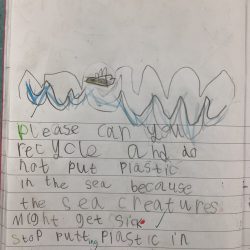 please can you
recycle and do
not put plastic
in the sea because
the sea creatures
might get sick
stop putting plastic in